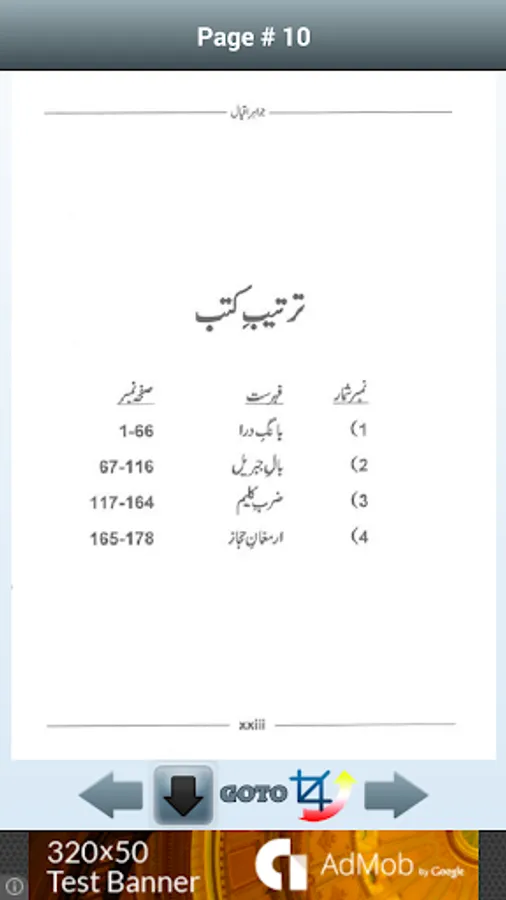 Page # 10
جواہر اقبال
ترتیبِ کتب
نمبر شمار فہرست صفحہ نمبر
(1 بانگِ درا 1-66
(2 بالِ جبریل 67-116
(3 ضربِ کلیم 117-164
(4 ارمغانِ حجاز 165-178
xxiii
GOTO
320×50
Test Banner
AdMob by Google